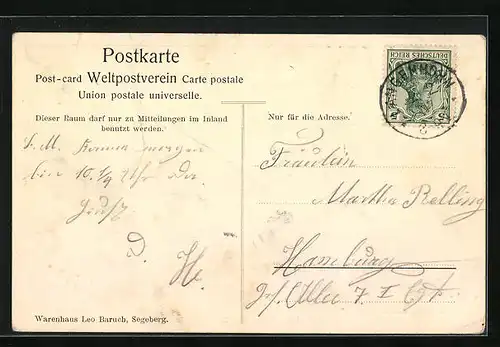 Postkarte
Post-card Weltpostverein Carte postale
Union postale universelle.
Dieser Raum darf nur zu Mitteilungen im Inland
benutzt werden.
Nur für die Adresse.
DEUTSCHES REICH
L. M. Komme morgen
10 1/4 Uhr
Gruß
D. H.
Fräulein
Martha Relling
Hamburg
7 I
Warenhaus Leo Baruch, Segeberg.